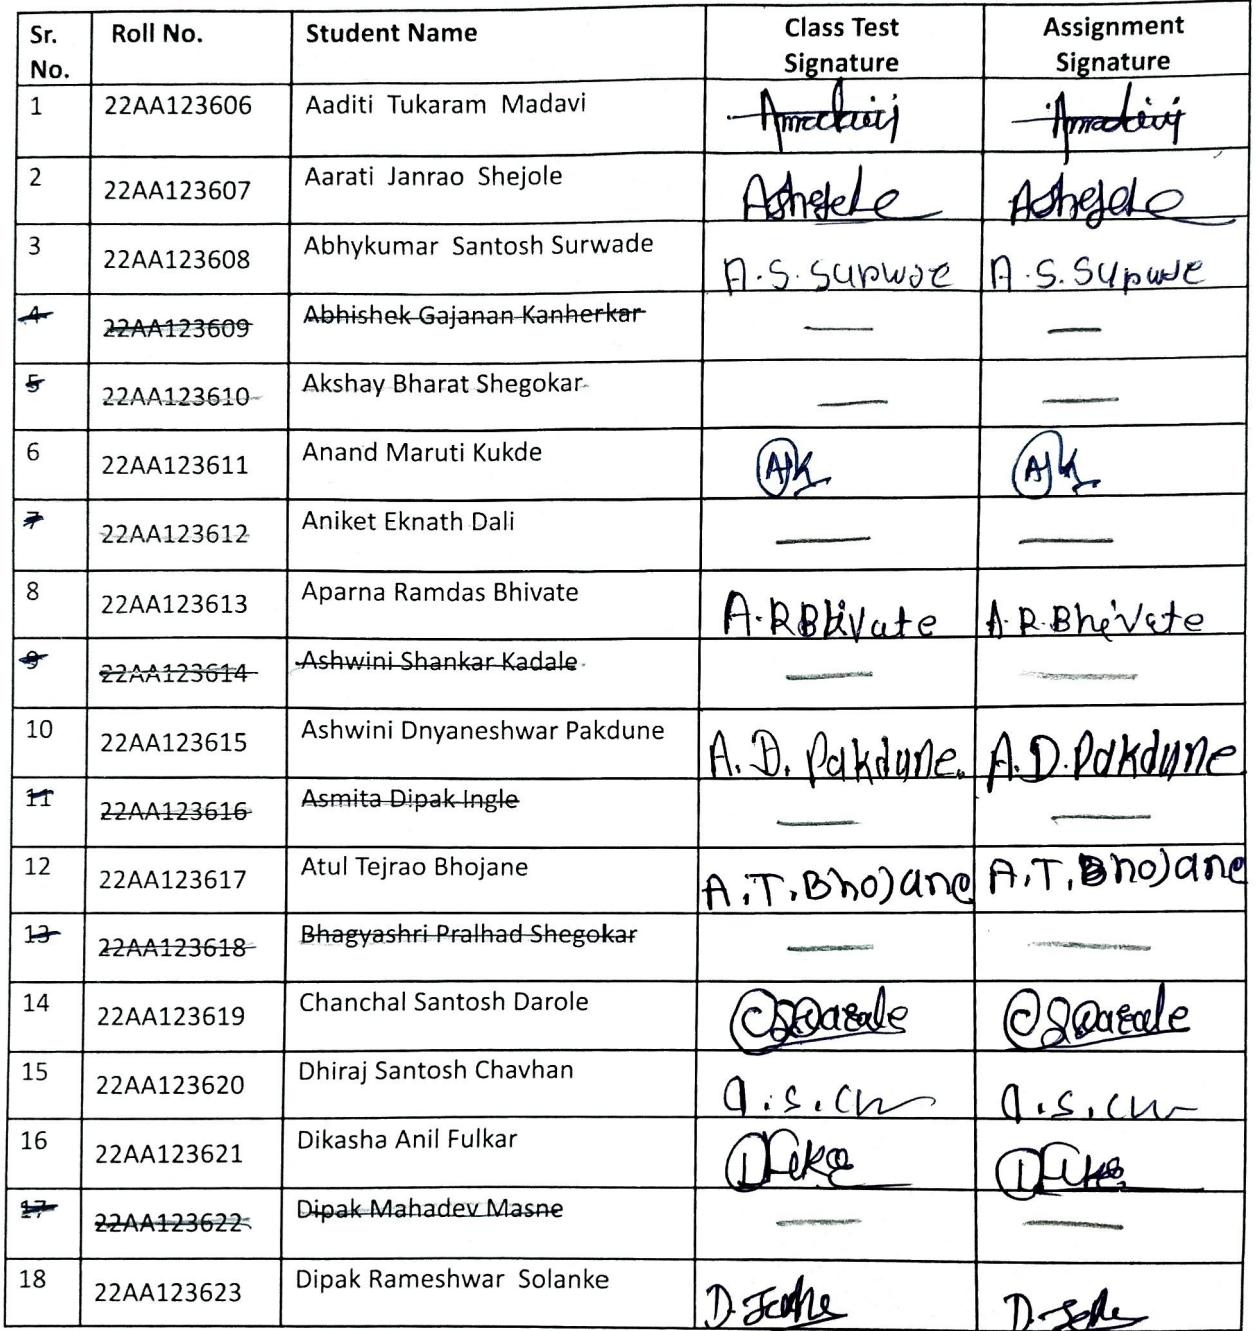 Sr. No. Roll No. Student Name Class Test Signature Assignment Signature
1 22AA123606 Aaditi Tukaram Madavi Amadavi Amadavi
2 22AA123607 Aarati Janrao Shejole Ashejole Ashejole
3 22AA123608 Abhykumar Santosh Surwade A.S.Surwde A.S.Surwde
4 22AA123609 Abhishek Gajanan Kanherkar — —
5 22AA123610 Akshay Bharat Shegokar — —
6 22AA123611 Anand Maruti Kukde AK AK
7 22AA123612 Aniket Eknath Dali — —
8 22AA123613 Aparna Ramdas Bhivate A.R Bhivate A.R.Bhivate
9 22AA123614 Ashwini Shankar Kadale — —
10 22AA123615 Ashwini Dnyaneshwar Pakdune A.D. Pakdune. A.D.Pakdune
11 22AA123616 Asmita Dipak Ingle — —
12 22AA123617 Atul Tejrao Bhojane A.T.Bhojane A.T.Bhojane
13 22AA123618 Bhagyashri Pralhad Shegokar — —
14 22AA123619 Chanchal Santosh Darole
15 22AA123620 Dhiraj Santosh Chavhan
16 22AA123621 Dikasha Anil Fulkar
17 22AA123622 Dipak Mahadev Masne — —
18 22AA123623 Dipak Rameshwar Solanke